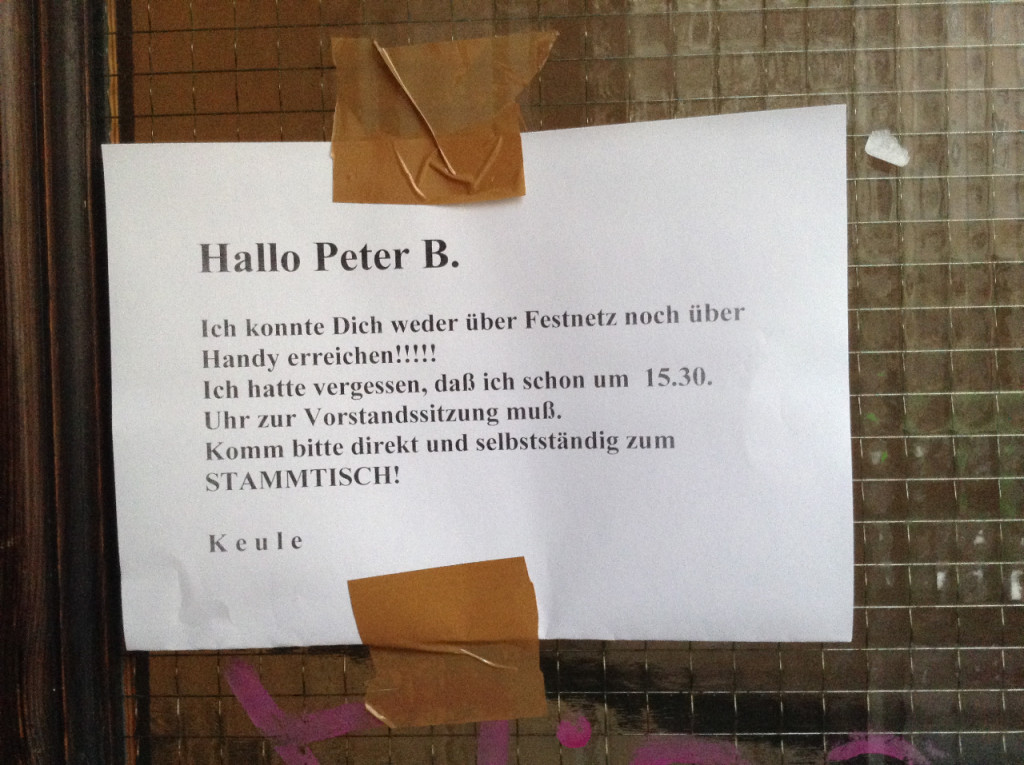 Hallo Peter B.
Ich konnte Dich weder über Festnetz noch über
Handy erreichen!!!!!
Ich hatte vergessen, daß ich schon um  15.30.
Uhr zur Vorstandssitzung muß.
Komm bitte direkt und selbstständig zum
STAMMTISCH!
K e u l e